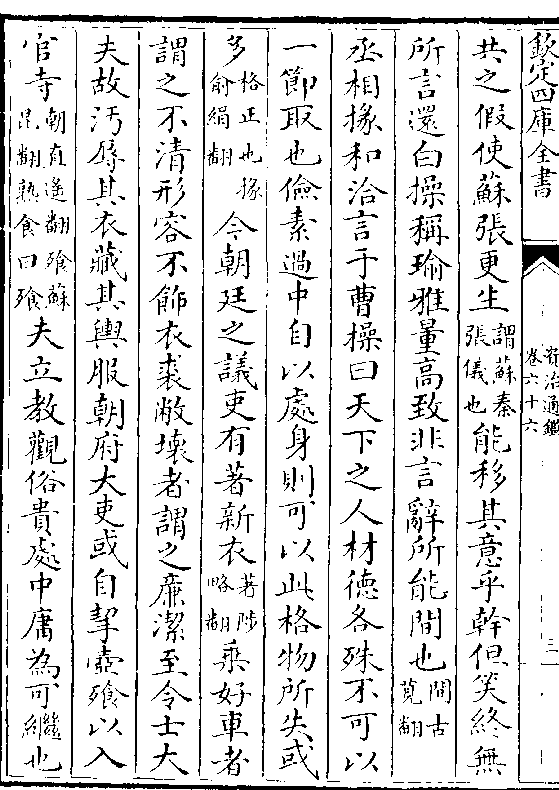 欽定四庫全書
資治通鑑
卷六十六
三
共之假使蘇張更生謂蘇秦張儀也能移其意乎幹但笑終無
所言還白操稱瑜雅量高致非言辭所能間也間古莧翻
丞相掾和洽言于曹操曰天下之人材德各殊不可以
一節取也儉素過中自以處身則可以此格物所失或
多格正也掾俞絹翻今朝廷之議吏有著新衣著陟略翻乘好車者
謂之不清形容不飾衣裘敝壞者謂之廉潔至令士大
夫故汚辱其衣藏其輿服朝府大吏或自挈壺飱以入
官寺朝直遥翻飱蘇昆翻熟食曰飱夫立教觀俗貴處中庸為可繼也